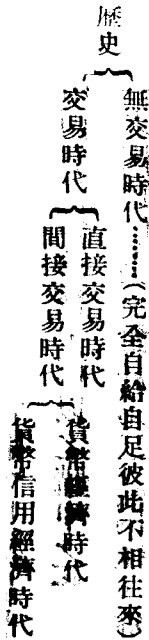 歷史
無交易時代………(完全自給自足彼此不相往來)
交易時代
直接交易時代
間接交易時代
貨幣經濟時代
貨幣信用經濟時代